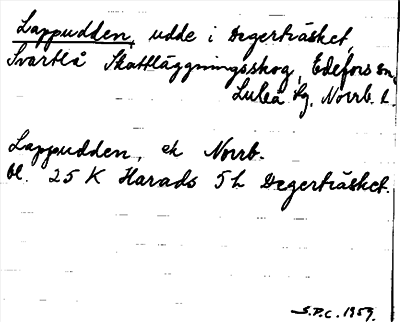 Lappudden, udde i Degerträsket,
Svartlå Skattläggningsskog, Edefors sn,
Luleå lg, Norrb. l.
Lappudden, ek Norrb.
bl. 25 K Harads 5 h Degerträsket.
S.P.C. 1959.